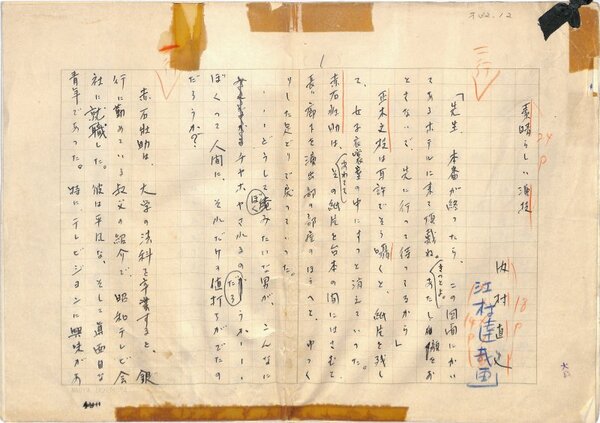 素晴らしい演技
内村直也
江村達哉画
「先生 本番が終ったら、この図面にかい
てあるホテルに来て頂戴ね。きっとよ。あたし自働でお
ともないで、先に行って待ってるから」
並木久枝は耳許でそう囁くと、紙片を残し
て、女子衣裳室の中にすっと消えていった。
赤石壮助は、あわててその紙片を台本の間にはさむと
長い廊下を演出部の部屋のほうへと、ゆっく
りした足どりで戻っていった。
……どうしてぼくみたいな男が、こんなに
チヤホヤされるのだろうか――
ぼくって人間に、それだけの値打ちがでたの
だろうか?
赤石壮助は、大学の法科を卒業すると、銀
行に勤めている叔父の紹介で、昭和テレビ会
社に就職した。彼は平凡な、そして真面目な
青年であった。特にテレビジョンに興味があ
オ42.12
三行
24P
18P
14P
1